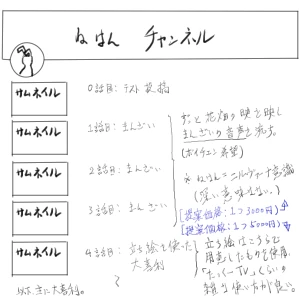 ねはん チャンネル
サムネイル
0話目: テスト投稿
サムネイル
1話目: まんざい
サムネイル
2話目: まんざい
サムネイル
3話目: まんざい
サムネイル
4話目: 立ち絵を使った
大喜利
ずっと花畑の映を映し
まんざいの音声を流す。
(ボイチェン希望)
※ ねはん=ニルヴァーナ
(深い意味はない。)
[提案価格: 1つ3000円]
[提案価格: 1つ5000円]
立ち絵はこちらで
用意したものを使用
くらいの
雑な使い方が良い。
以下、主に大喜利。